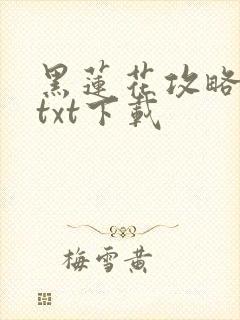 黑蓮花攻略
txt下載
梅雪黄